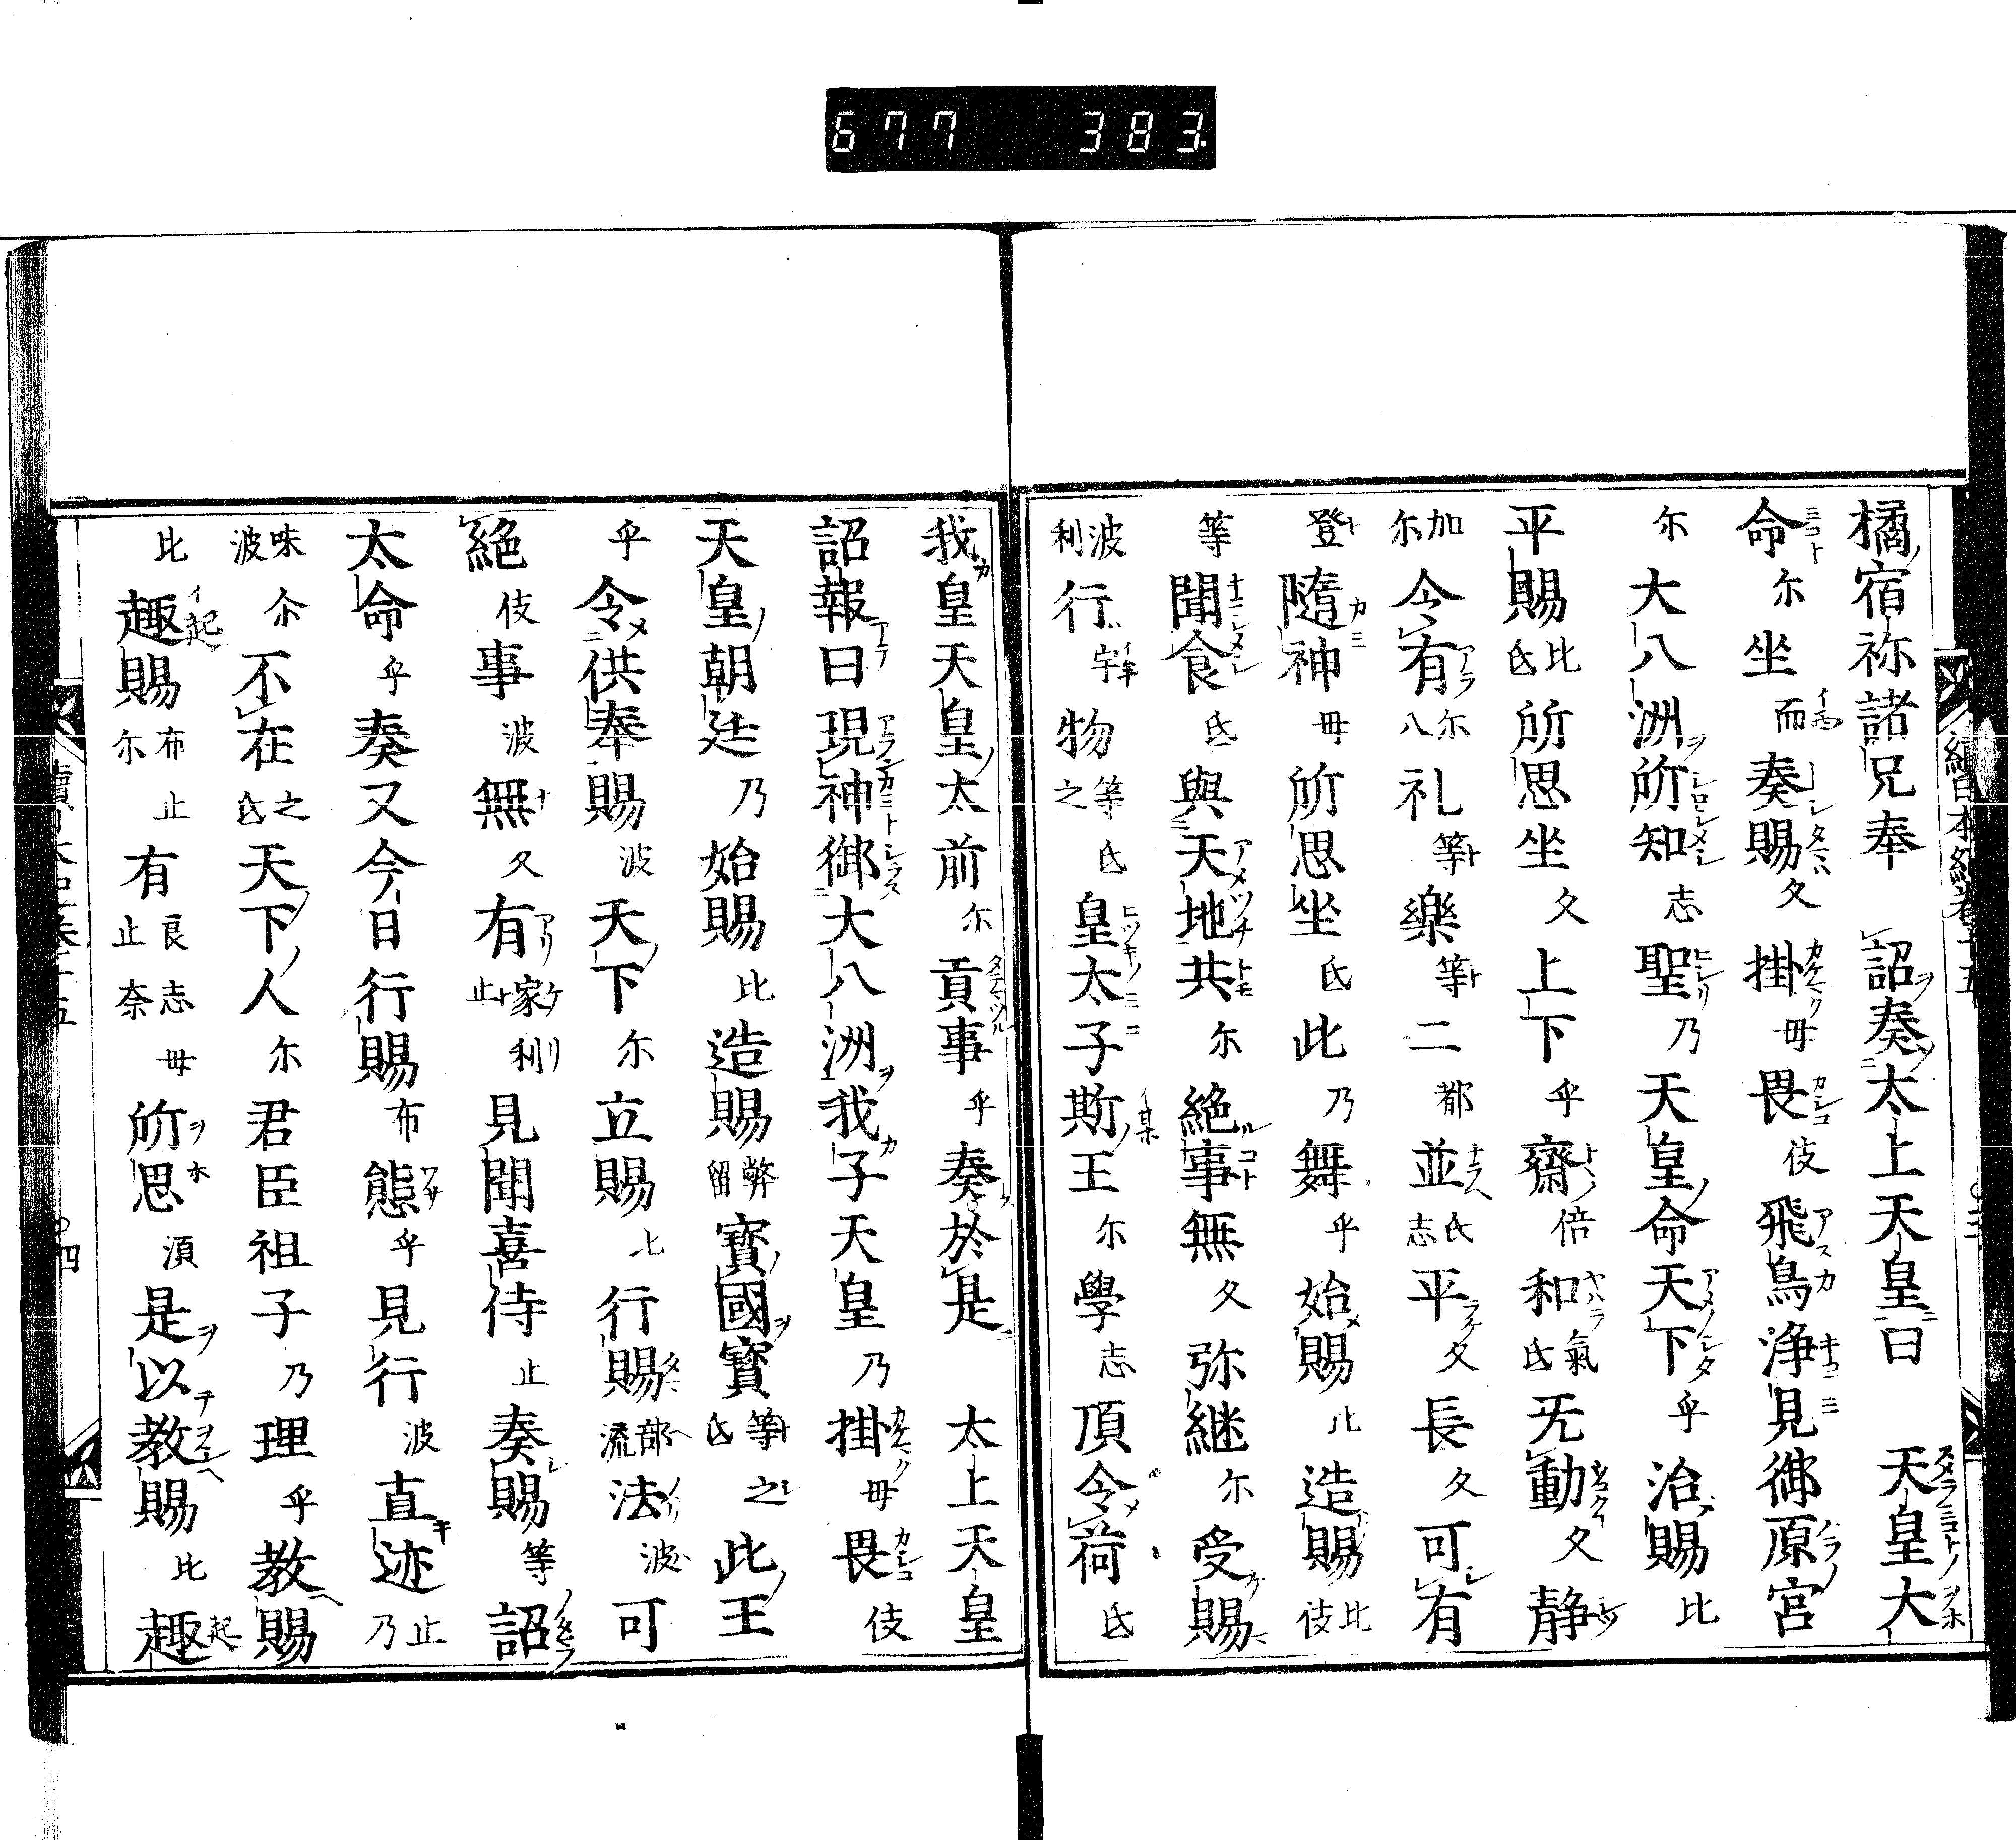 677 383.
橘宿祢諸兄奉 詔奏太上天皇曰 天皇大
命尓坐而奏賜久掛毋畏伎飛鳥浄見御原宮
尓大八洲所知志聖乃天皇命天下乎治賜比
平賜比弖所思坐久上下乎齊倍和氣弖无動久静
加尓令有尓八礼等樂等二都並弖志平久長久可有
登隨神毋所思坐弖此乃舞乎始賜比造賜比伎
等聞食弖與天地共尓絶事無久弥継尓受賜
波利行牢物等之弖皇太子斯王尓學志頂令荷弖
我皇天皇太前尓貢事乎奏於是 太上天皇
詔報曰現神御大八洲我子天皇乃掛毋畏伎
天皇朝廷乃始賜比造賜弊留寳國寳等弖之此王
乎令供奉賜波天下尓立賜比行賜部流法波可
絶伎事波無久有家利止見聞喜侍止奏賜等詔
太命乎奏又今日行賜布態乎見行波直迹止乃
味尓波不在之弖天下人尓君臣祖子乃理乎教賜
比趣賜布尓止有良志止奈毋所思湏是以教賜比趣
續日本紀巻十五
四